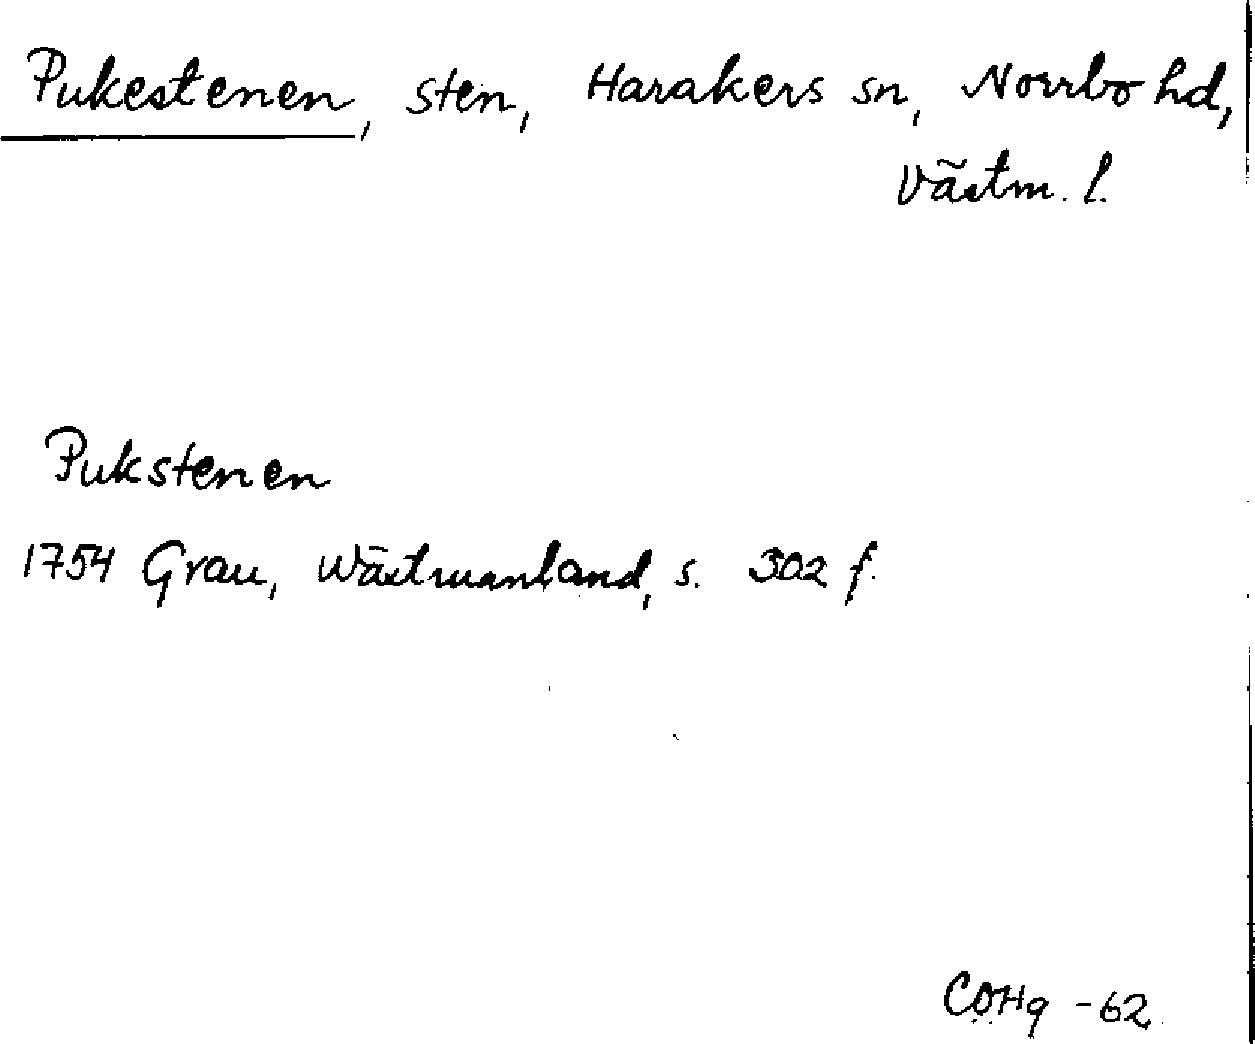 Pukestenen, sten, Harakers sn, Norrbo hd,
Västm. l.
Pukstenen
1754 Grau, Wästmanland, s. 302 f.
COHg -62